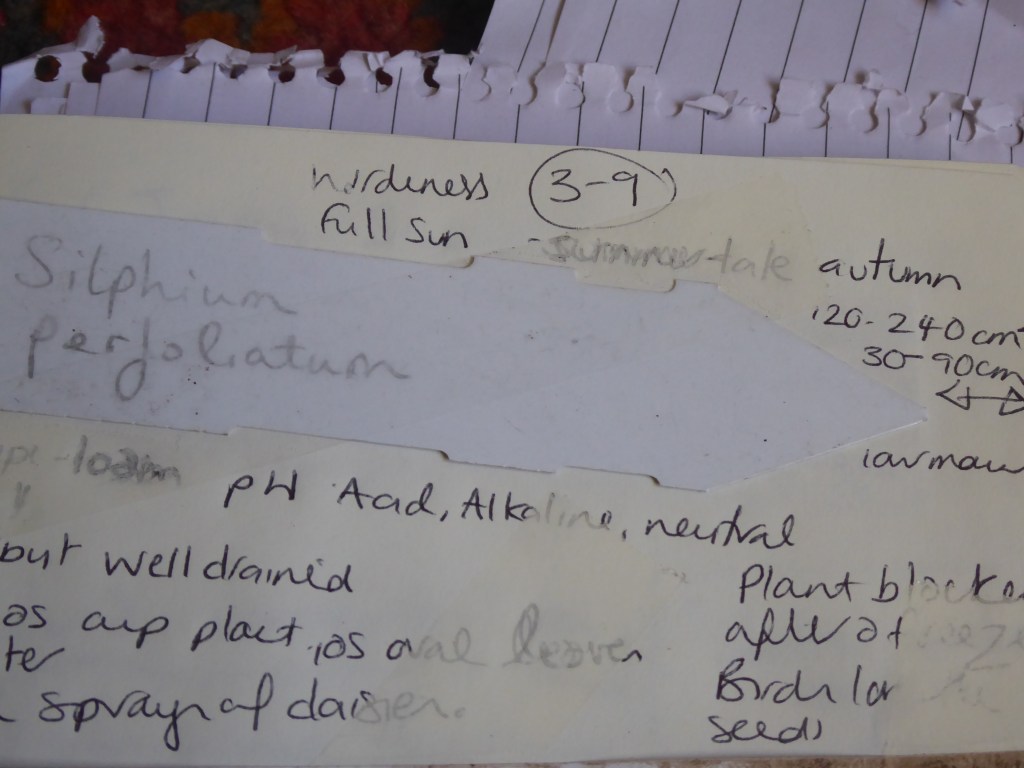 hardeness 3-9
Full Sun
summer - late autumn
Silphium
perfoliatum
120-240cm
30-90cm
-loam
pH Acid, Alkaline, neutral
but well drained
as cup plant, as oval leaves
ter
sprays of daisies.
Plant blacke
after at
Birds lov
seeds